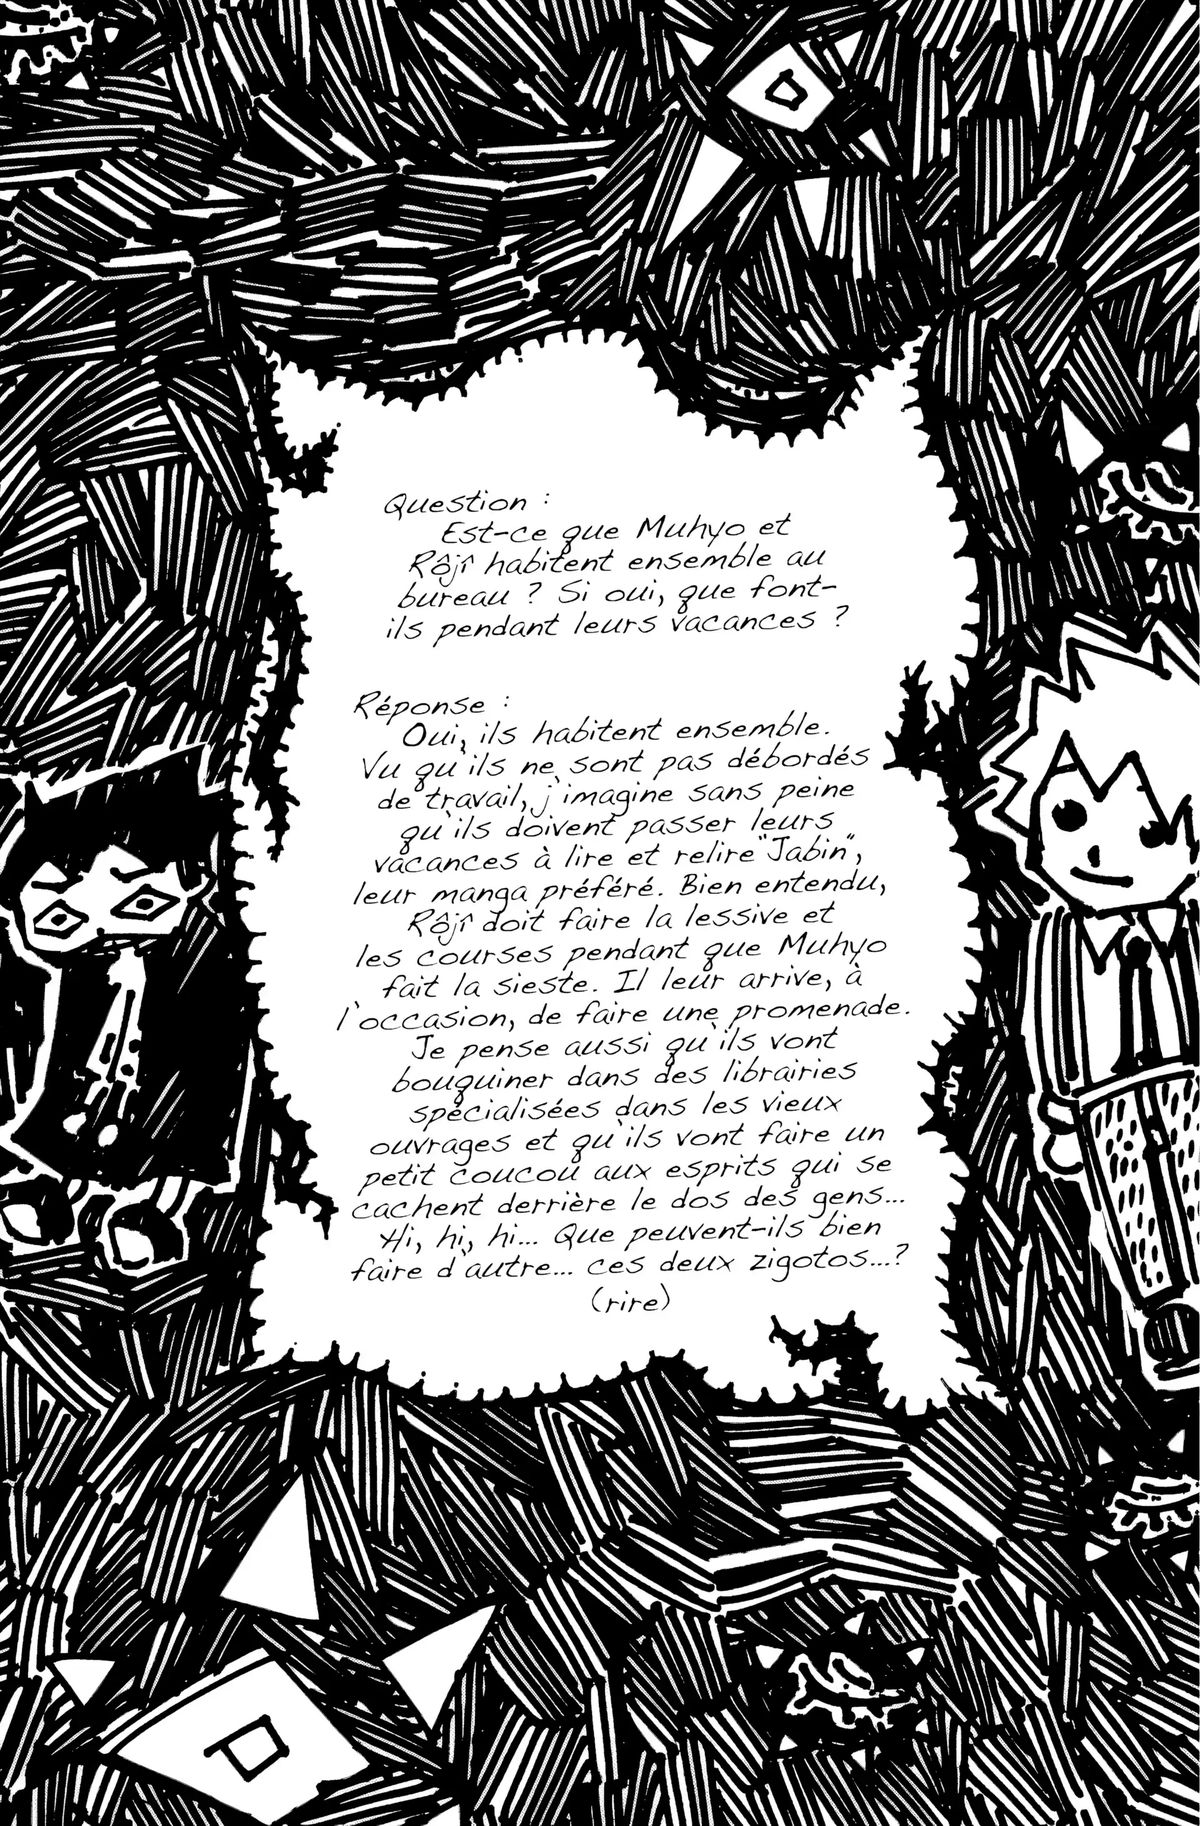 Question :
Est-ce que Muhyo et
Rôjî habitent ensemble au
bureau ? Si oui, que font-
ils pendant leurs vacances ?
Réponse :
Oui, ils habitent ensemble.
Vu qu'ils ne sont pas débordés
de travail, j'imagine sans peine
qu'ils doivent passer leurs
vacances à lire et relire "Jabin",
leur manga préféré. Bien entendu,
Rôjî doit faire la lessive et
les courses pendant que Muhyo
fait la sieste. Il leur arrive, à
l'occasion, de faire une promenade.
Je pense aussi qu'ils vont
bouquiner dans des librairies
spécialisées dans les vieux
ouvrages et qu'ils vont faire un
petit coucou aux esprits qui se
cachent derrière le dos des gens...
Hi, hi, hi... Que peuvent-ils bien
faire d'autre... ces deux zigotos...?
(rire)